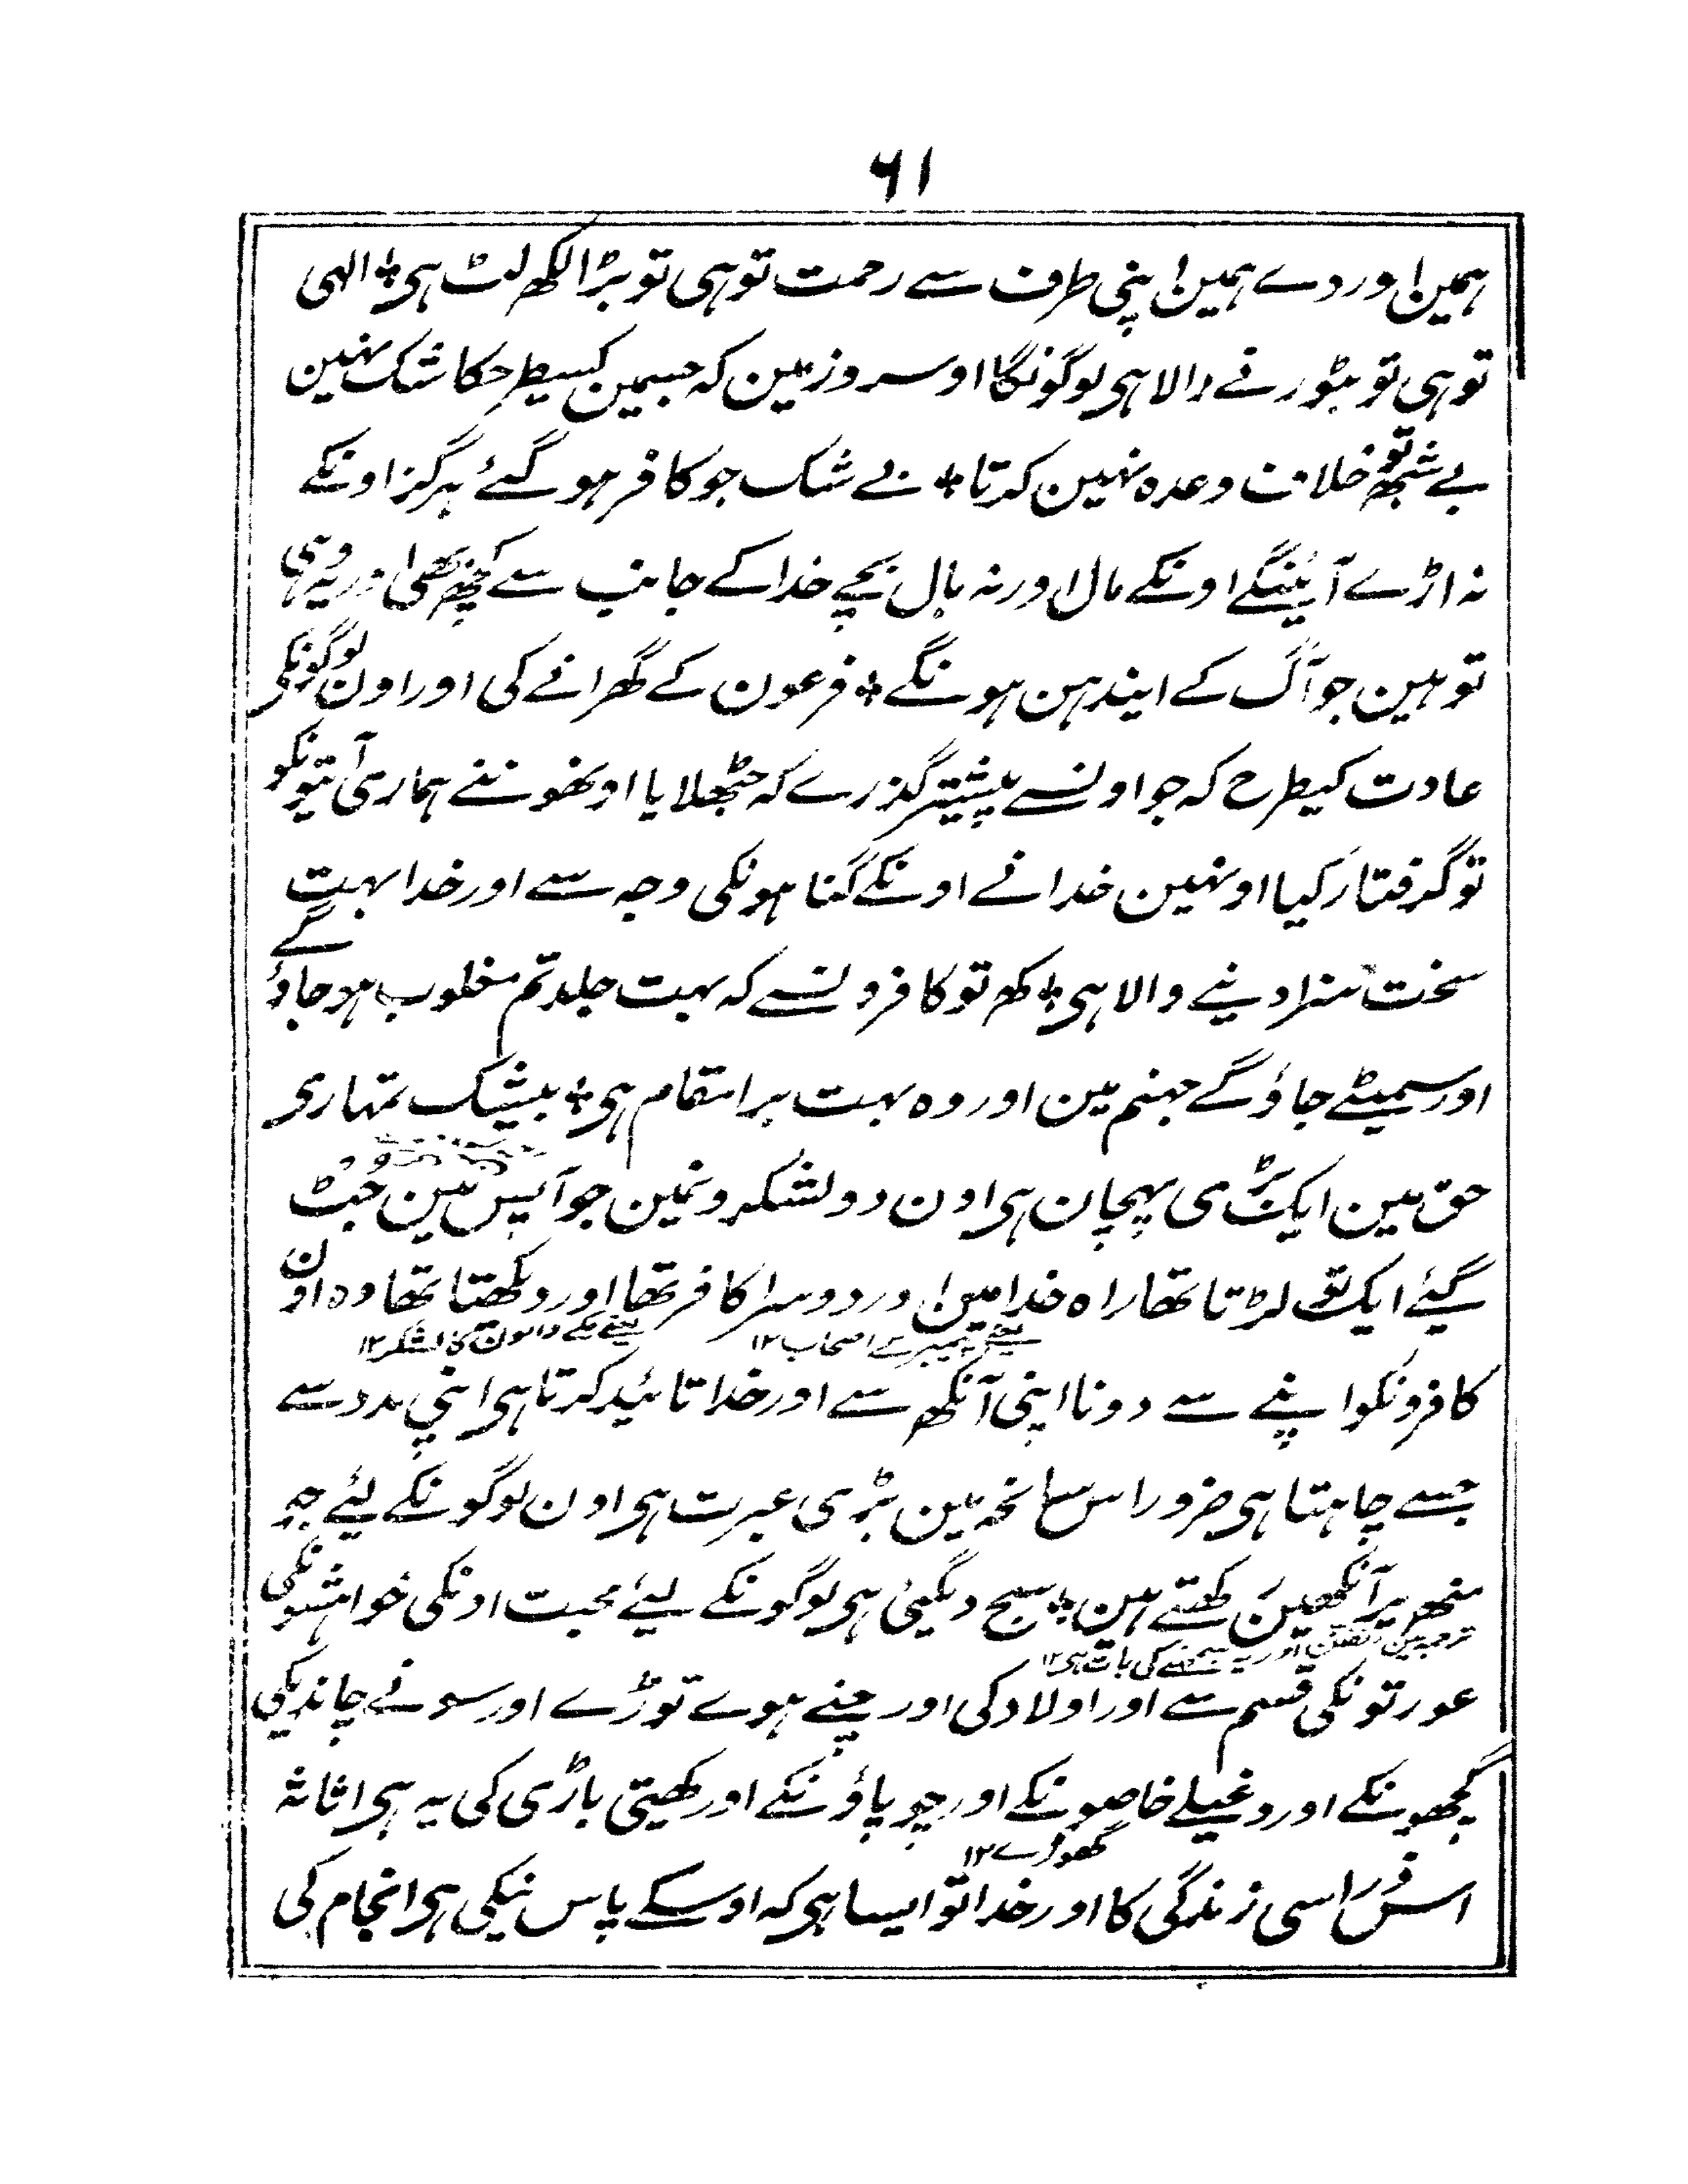 ٦١
ہمین اور دے ہمین اپنی طرف سے رحمت تو ہی تو بڑا لکھ لٹ ہی ٭ الہی
تو ہی تو بٹورنے والا ہی لوگونکا اوسروز مین کہ جسمین کسیطرحکا شک نہین
بے شبھہ تو خلاف وعدہ نہین کرتا ٭ بے شک جو کافر ہو گئے ہرگز اونکے
نہ اڑے آئینگے اونکے مال اور نہ بال بچے خدا کے جانب سے کچھ بھی اور یہ وہی
تو ہین جو آگ کے ایندہن ہونگے ٭ فرعون کے گھرانے کی اور اون لوگونکی
عادت کیطرح کہ جو اونسے پیشتر گذرے کہ جٹھلایا اونھوننے ہماری آیتونکو
تو گرفتار کیا اونہین خدا نے اونکے گناہونکی وجہ سے اور خدا بہت
سخت سزا دینے والا ہی ٭ کھ تو کافرونسے کہ بہت جلد تم مغلوب ہو جاؤ گے
اور سمیٹے جاؤ گے جہنم مین اور وہ بہت برا مقام ہی ٭ بیشک تمہاری
حق مین ایک بڑی پہچان ہی اون دو لشکرونمین جو آپس مین جٹ
گیئے ایک تو لڑتا تھا راہ خدا مین اور دوسرا کافر تھا اور دیکھتا تھا وہ اون
یعنے پیمبر کے اصحاب ١٢ یعنے مکے والون کا لشکر ١٢
کافرونکو اپنے سے دونا اپنی آنکھ سے اور خدا تائید کرتا ہی اپنی مدد سے
جسے چاہتا ہی ضرور اس سانحہ مین بڑی عبرت ہی اون لوگونکے لیئے جو
منھ پر آنکھین رکھتے ہین ٭ سبج دیگئی ہی لوگونکے لیئے محبت اونکی خواہشونکی
ترجمہ مین اور یہ سمجھنے کی بات ہی ١٢
عورتونکی قسم سے اور اولاد کی اور چنے ہوے توڑے اور سونے چاندیکی
گچھونکے اور دغیلے خاصونکے اور چوپاؤنکے اور کھیتی باڑی کی یہ ہی اثاثہ
گھوڑے ١٢
اس ذرا سی زندگی کا اور خدا تو ایسا ہی کہ اوسکے پاس نیکی ہی انجام کی